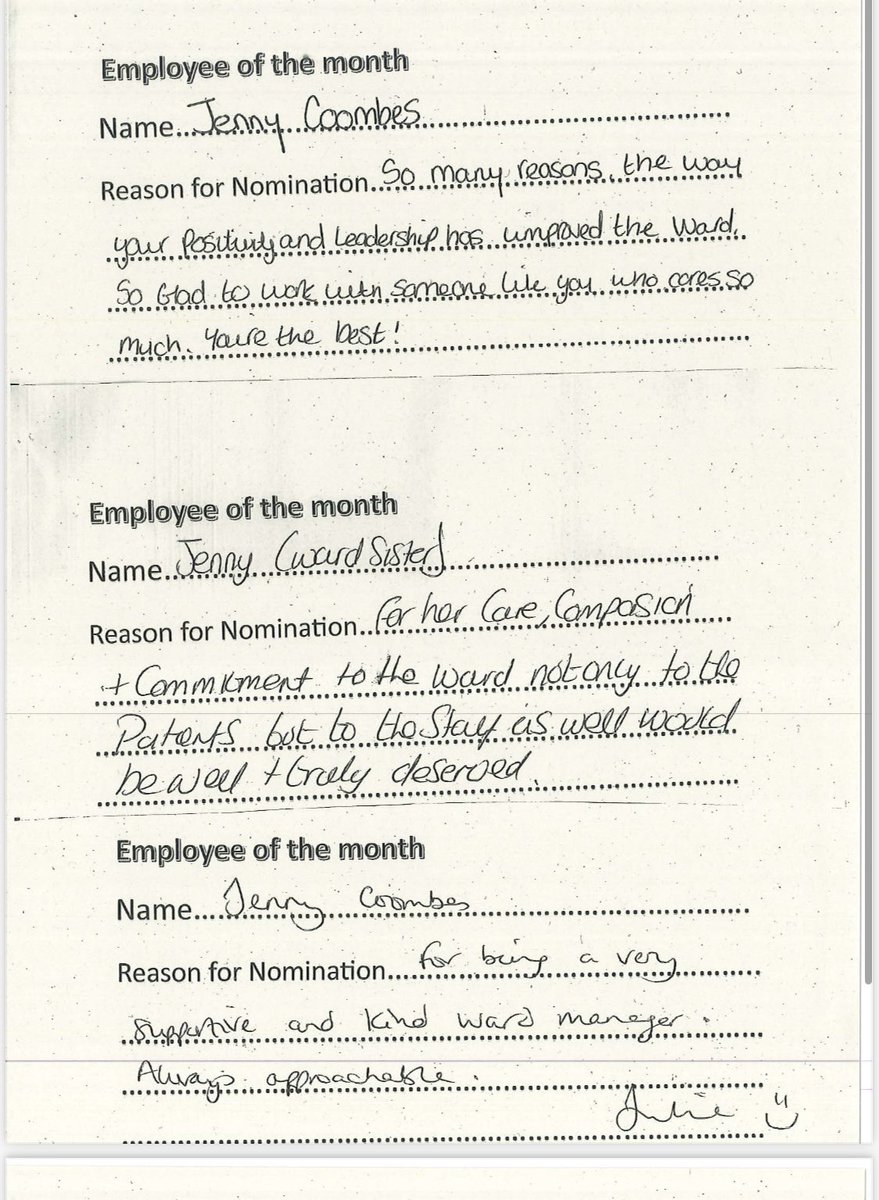 Employee of the month
Name Jenny Coombes
Reason for Nomination So many reasons, the way
your Positivity and Leadership has improved the Ward.
So Glad to work with someone like you who cares so
much. You're the best!
Employee of the month
Name Jenny (Ward Sister)
Reason for Nomination For her Care, Compasion
+ Commitment to the ward not only to the
Patients but to the Staff as well would
be well + truly deserved.
Employee of the month
Name Jenny Coombes
Reason for Nomination for being a very
supportive and kind ward manager.
Always approachable.
Julie